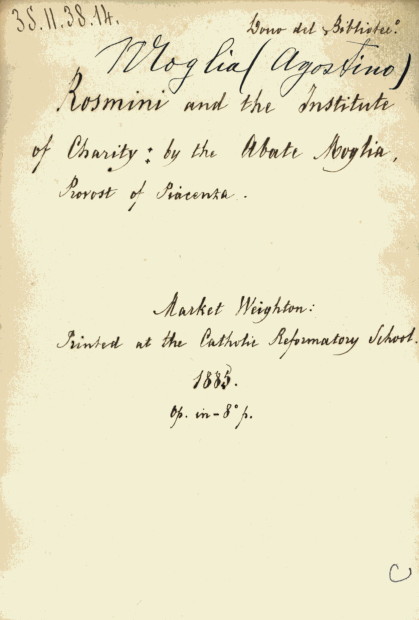 35.11.38.14.
Dono del Bibliotec.º
Moglia (Agostino)
Rosmini and the Institute
of Charity: by the Abate Moglia,
Provost of Piacenza.
Market Weighton:
Printed at the Catholic Reformatory School.
1885.
Op. in-8º p.
C